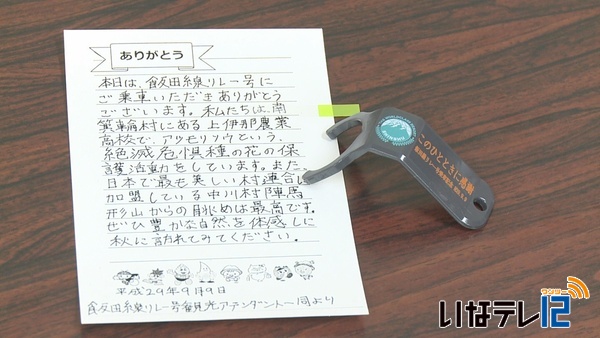 ありがとう
本日は、飯田線リレー号に
ご乗車いただきありがとう
ございます。私たちは、南
箕輪村にある上伊那農業
高校で、アツモリソウという、
絶滅危惧種の花の保
護活動をしています。また、
日本で最も美しい村連合に
加盟している中川村陣馬
形山からの眺めは最高です。
ぜひ豊かな自然を体感しに
秋に訪れてみてください。
平成29年9月9日
飯田線リレー号観光アテンダント一同より
このひとときに感謝
いなテレ12